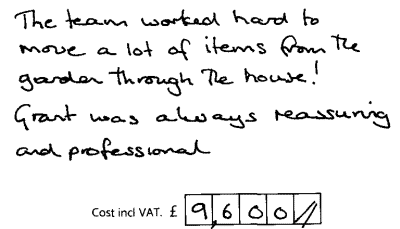 The team worked hard to
move a lot of items from the
garden through the house!
Grant was always reassuring
and professional
Cost incl VAT. £ 9,600